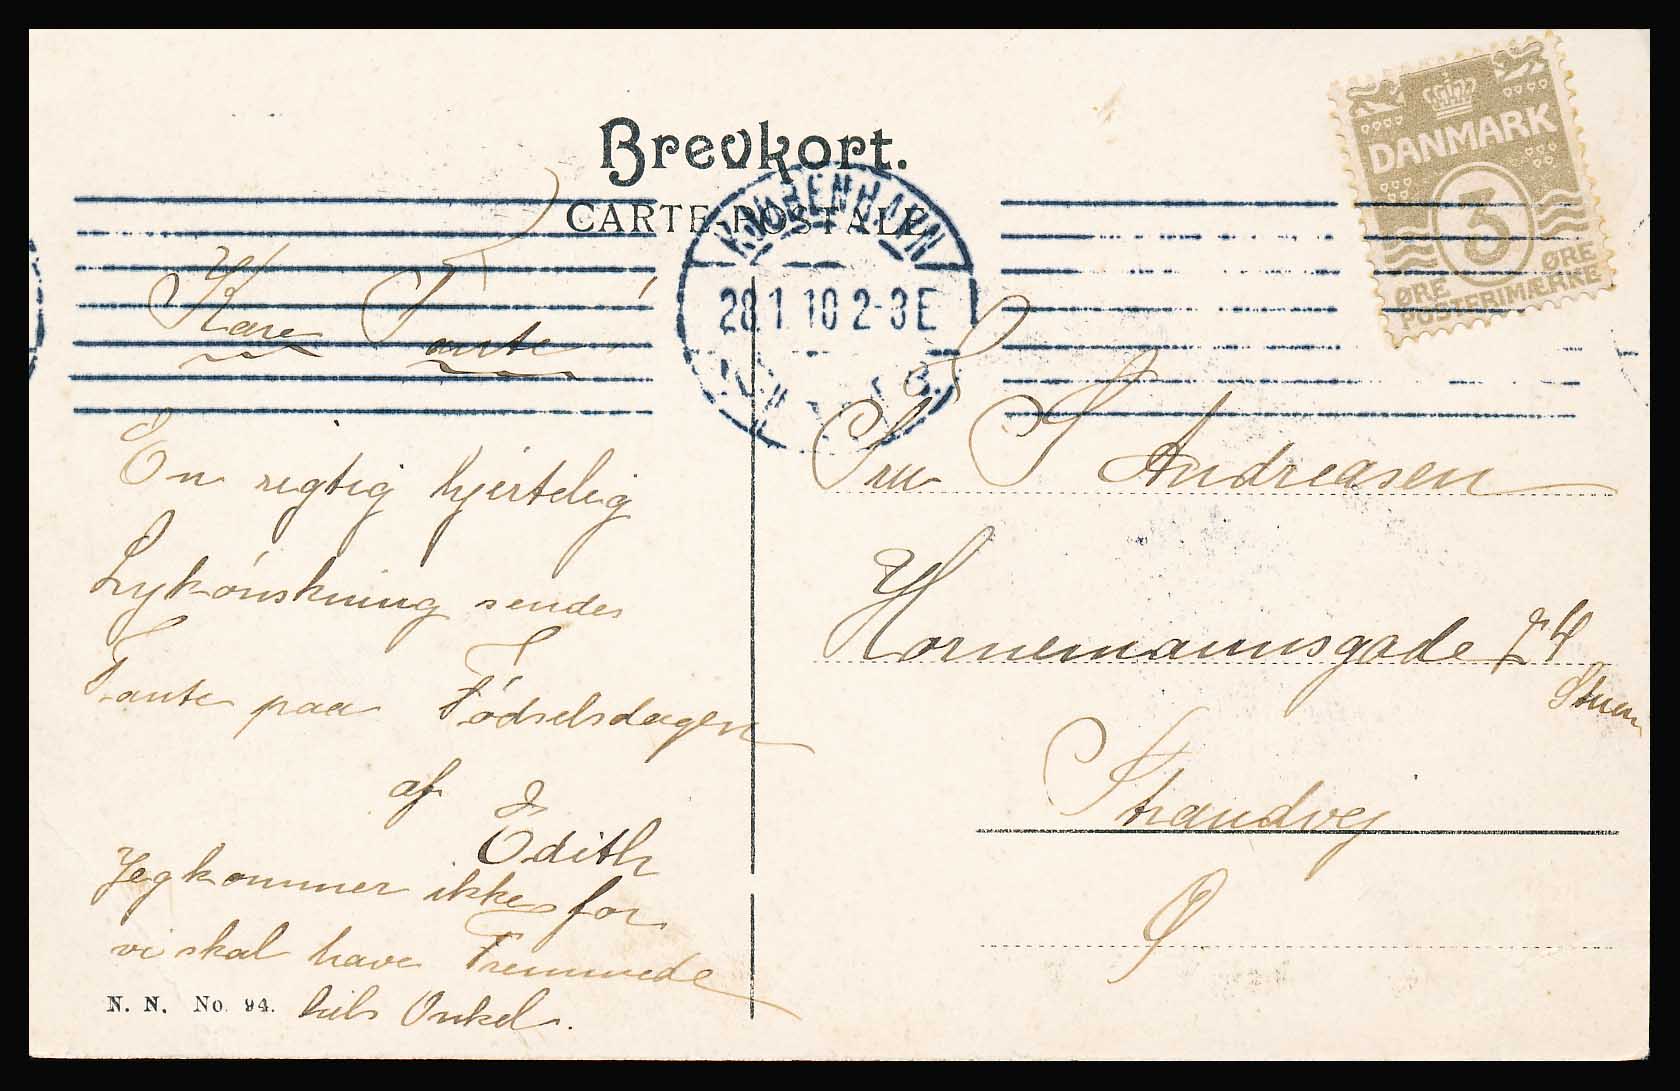 Brevkort.
CARTE POSTALE
DANMARK
3
ØRE ØRE
POSTFRIMÆRKE
KJØBENHAVN
28.1.10 2-3E
Kære Tante!
En rigtig hjertelig
Lykónskning sendes
Tante paa Fódselsdagen
af
Edith
Jeg kommer ikke for
vi skal have Fremmede
hils Onkel.
N. N. No. 94.
Fru Andreasen
Hornemannsgade
Stuen
Strandvej
Ø